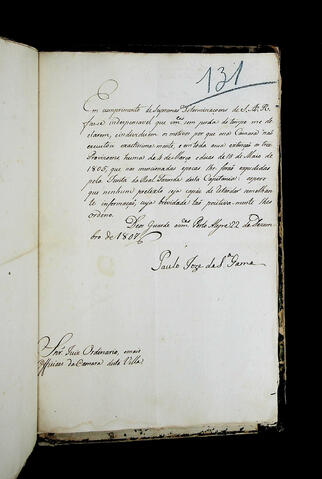 131
Em cumprimento de Supremas Determinaçoens de S. A. R.
fasse indispensavel que vm.ces sem perda de tempo me de-
clarem, e individuem os motivos por que essa Camara não
executou exactissimamente, e em toda sua extenção as tres
Provizoens huma de 8 de Março e duas de 18 de Maio de
1805, que nas mencionadas epocas lhe forão expedidas
pela Junta da Real Fazenda desta Capitania: espero
que nenhum pretexto seja capás de retardar semelhan-
te informação, cuja brevidade tão positivamente lhes
ordeno.
Deos Guarde a vm.ces Porto Alegre 22 de Dezem-
bro de 1807.
Paulo Joze da S.a Gama
Snr. Juiz Ordinario, e mais
Officiaes da Camara desta Villa